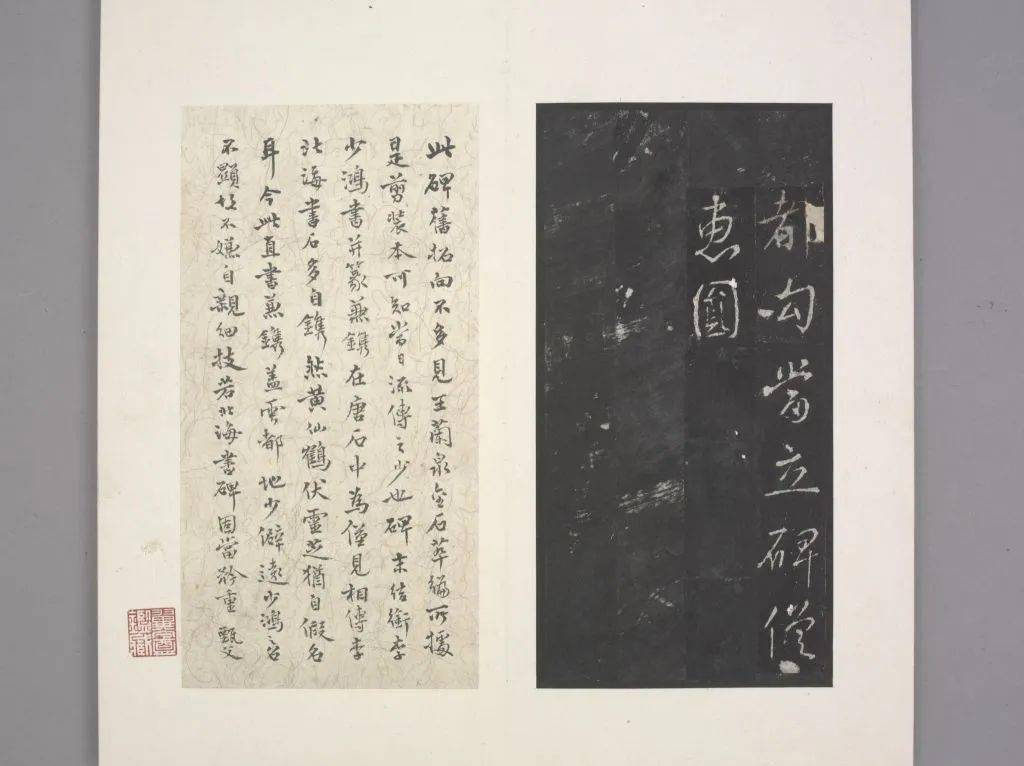 都勾當立碑僧
惠圓
此碑舊拓向不多見王蘭泉金石萃編所據
是剪裝本可知當日流傳之少也碑末結銜李
少鴻書并篆兼鐫在唐石中為僅見相傳李
北海書石多自鐫然黄仙鶴伏靈芝猶自假名
耳今此直書兼鐫蓋雩都地少僻遠少鴻之名
不顯故不嫌自親細技若北海書碑固當矜重 甄父
翼盦
鑑藏